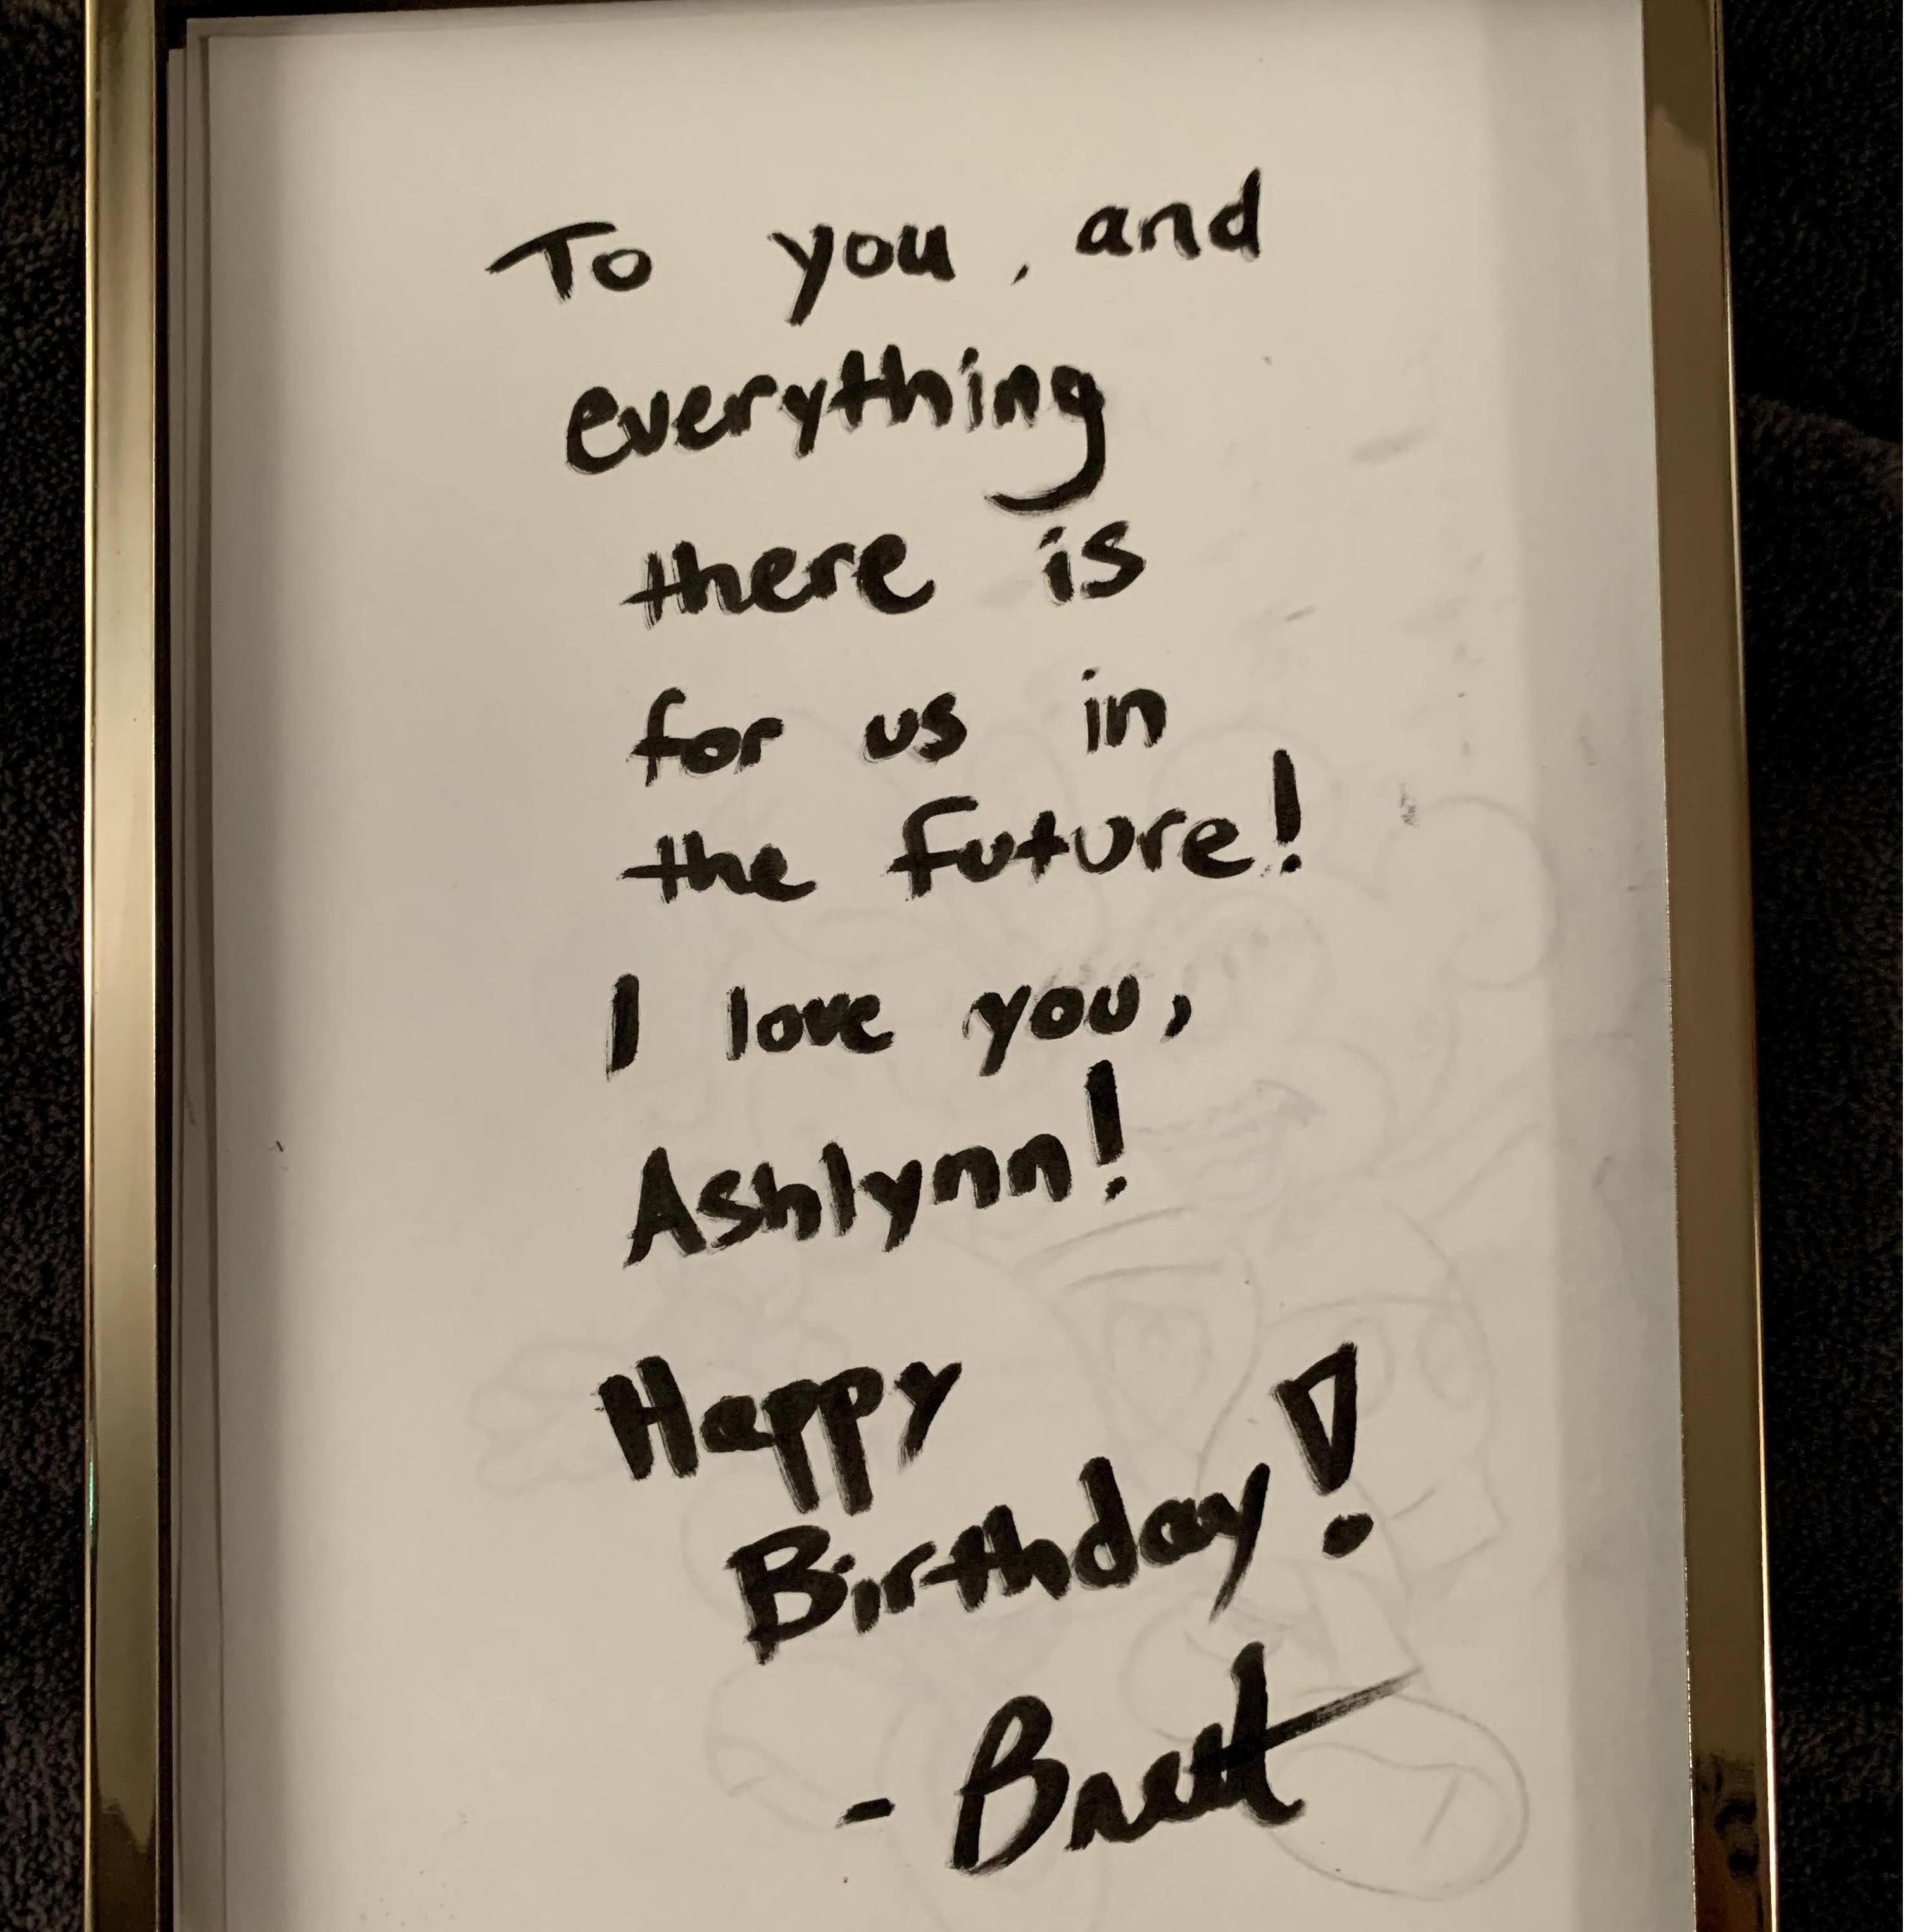 To you, and
everything
there is
for us in
the future!
I love you,
Ashlynn!
Happy
Birthday!
- Brett